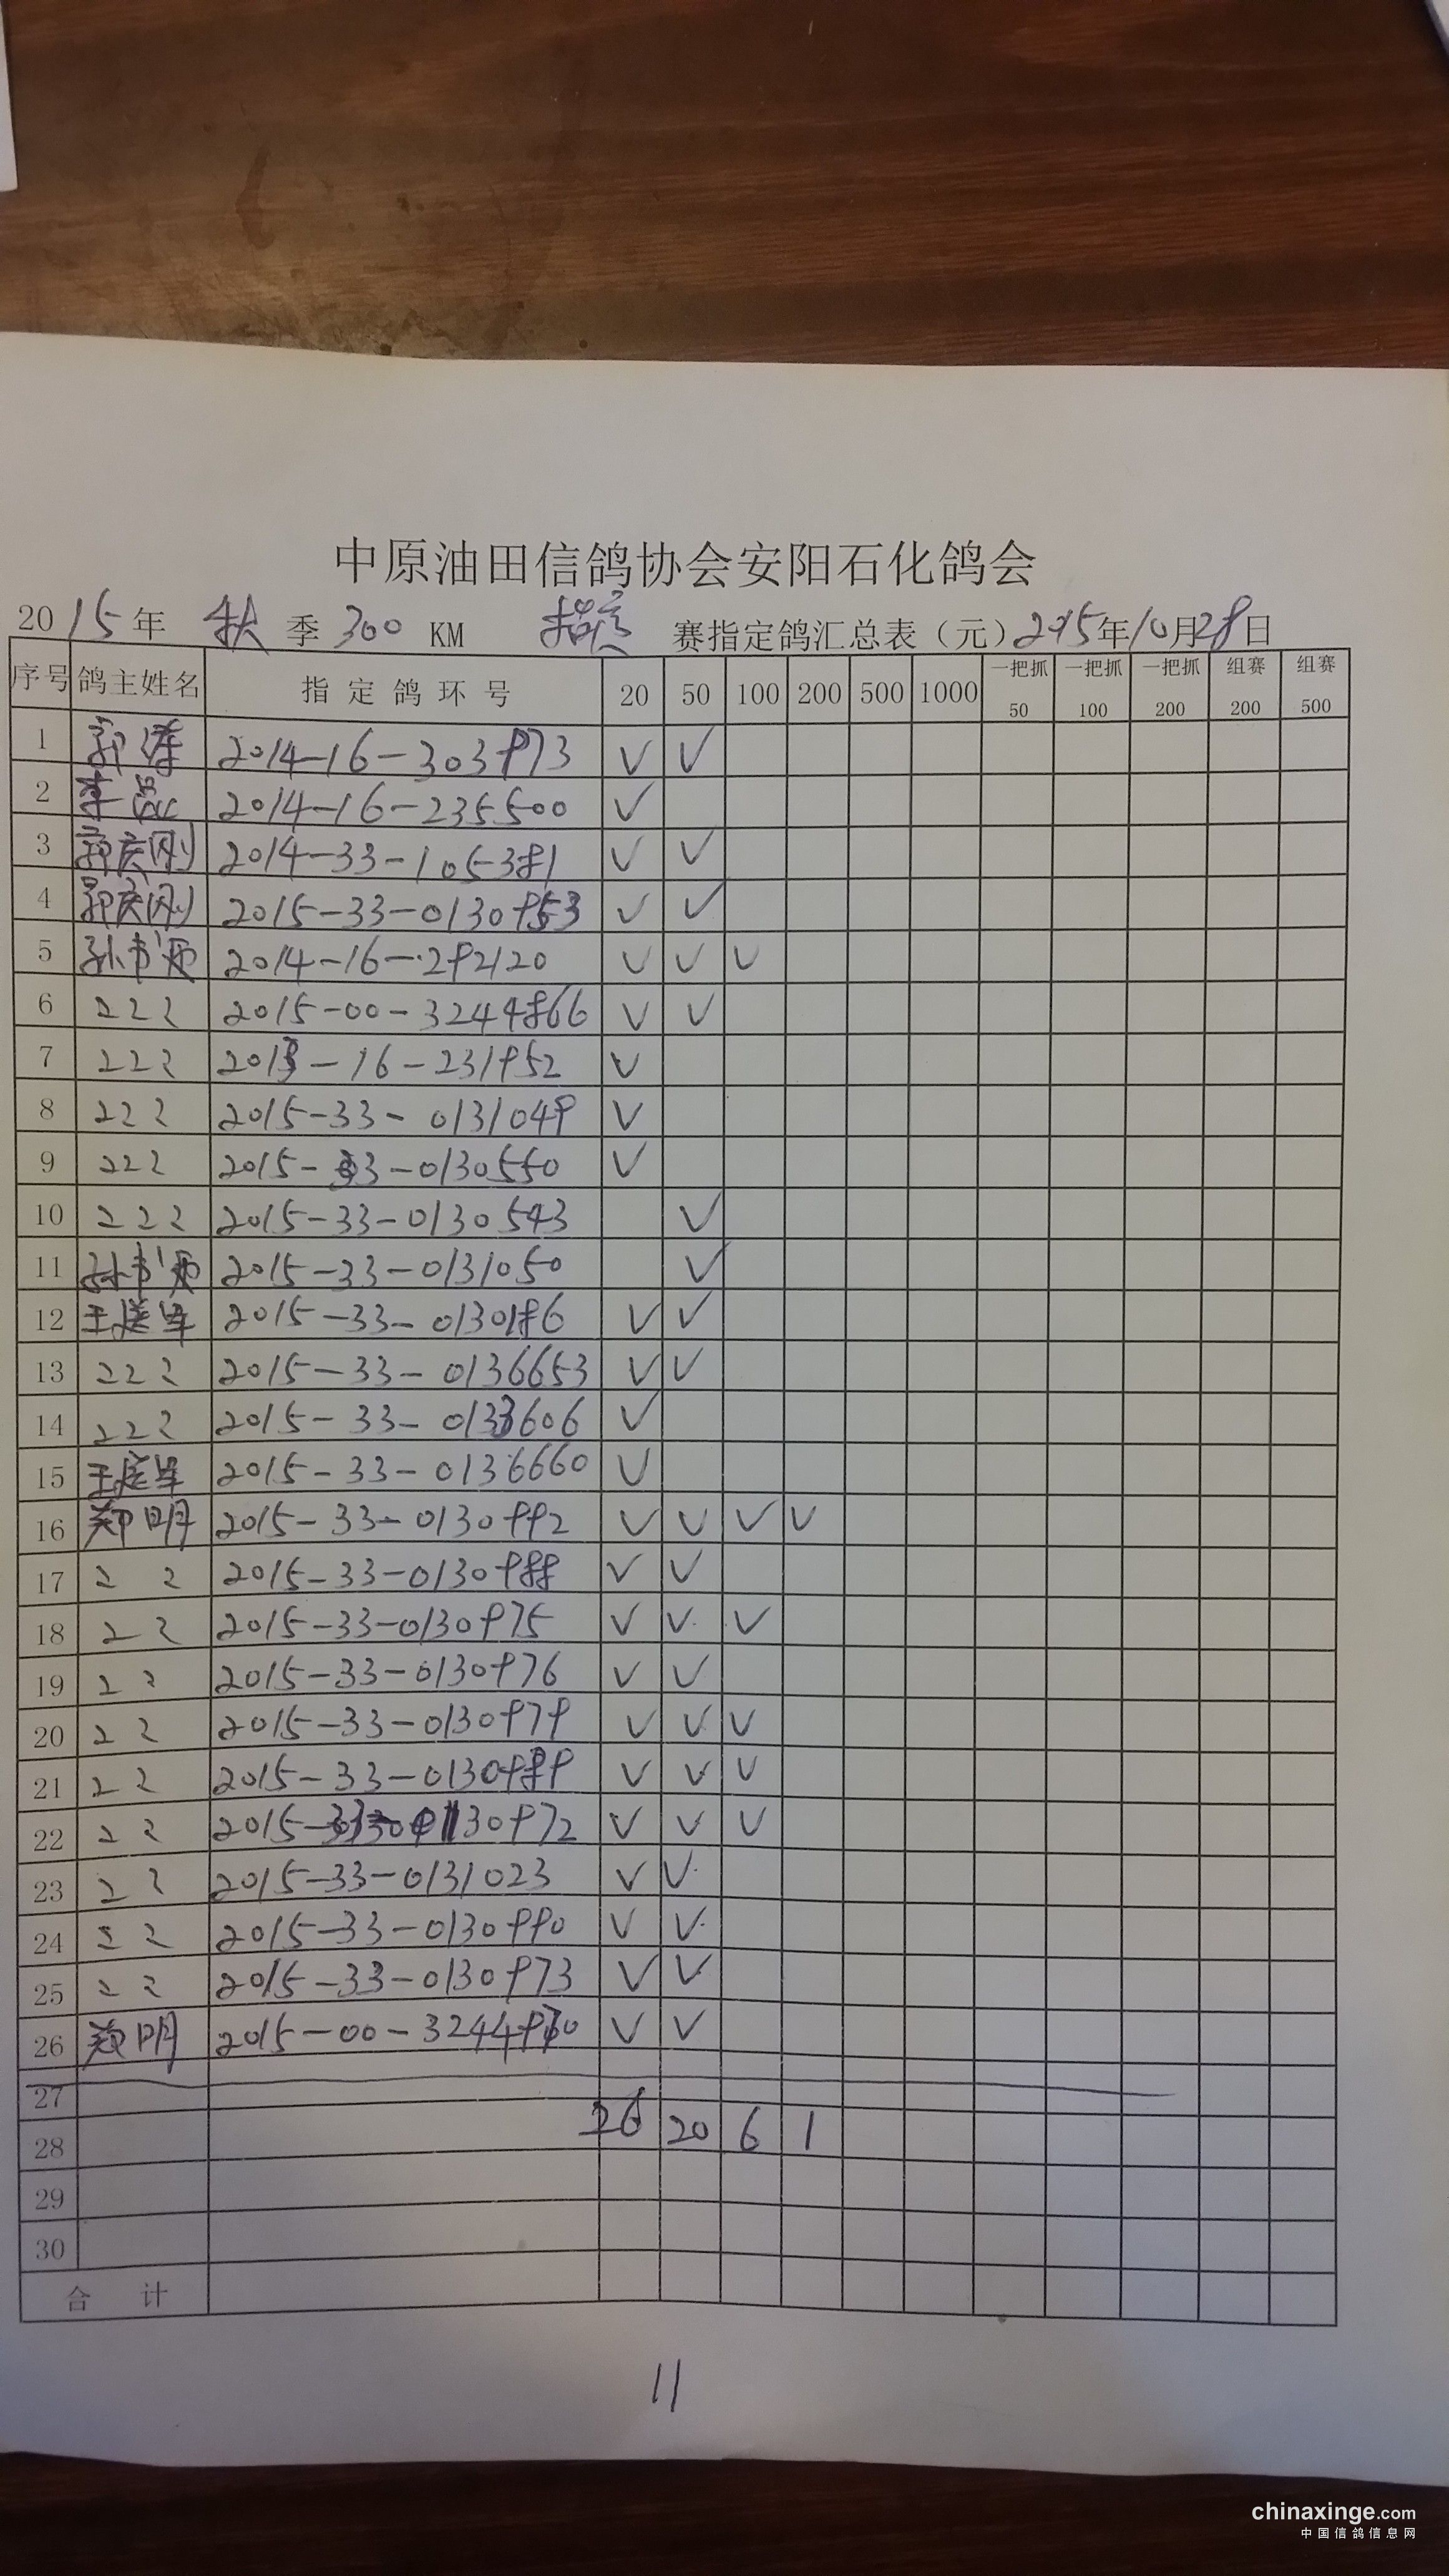 中原油田信鸽协会安阳石化鸽会
2015年 秋 季 300 KM 指定 赛指定鸽汇总表（元）2015年10月28日
序号 鸽主姓名 指定鸽环号 20 50 100 200 500 1000 一把抓50 一把抓100 一把抓200 组赛200 组赛500
1 2014-16-303973 √ √
2 2014-16-235500 √
3 郭庆刚 2014-33-105381 √ √
4 郭庆刚 2015-33-0130953 √ √
5 2014-16-292120 √ √ √
6 222 2015-00-3244866 √ √
7 222 2013-16-231952 √
8 222 2015-33-0131049 √
9 222 2015-33-0130550 √
10 222 2015-33-0130543 √
11 2015-33-0131050 √
12 2015-33-0130186 √ √
13 222 2015-33-0136653 √ √
14 222 2015-33-0133606 √
15 2015-33-0136660 √
16 郑明 2015-33-0130992 √ √ √ √
17 2 2 2015-33-0130988 √ √
18 2 2 2015-33-0130975 √ √ √
19 2 2 2015-33-0130976 √ √
20 2 2 2015-33-0130979 √ √ √
21 2 2 2015-33-0130989 √ √ √
22 2 2 2015- 130972 √ √ √
23 2 2 2015-33-0131023 √ √
24 2 2 2015-33-0130990 √ √
25 2 2 2015-33-0130973 √ √
26 郑明 2015-00-3244970 √ √
27
28 26 20 6 1
29
30
合计
11
chinaxinge.com
中国信鸽信息网